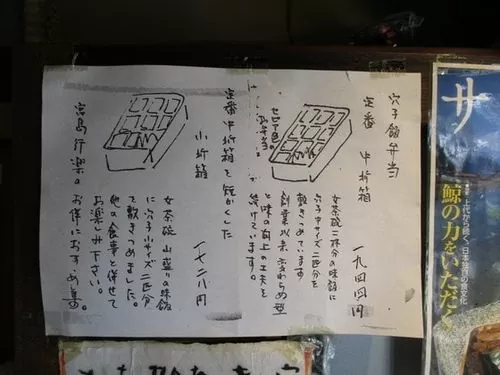 穴子飯弁当
定番 中折箱 一九四四円
女茶碗二杯分の味飯に
穴子中サイズ二匹分を
敷きつめています
創業以来変わらぬ型
と味の向上の工夫を
続けています。
定番中折箱を短かくした
小折箱 一七二八円
女茶碗 山盛りの味飯
に穴子小サイズ二匹分
を敷きつめました。
他の食事と併せて
お楽しみ下さい。
宮島行楽のお供におすすめ
サ
上代から続く、日本独特の食文化
鯨の力をいただく